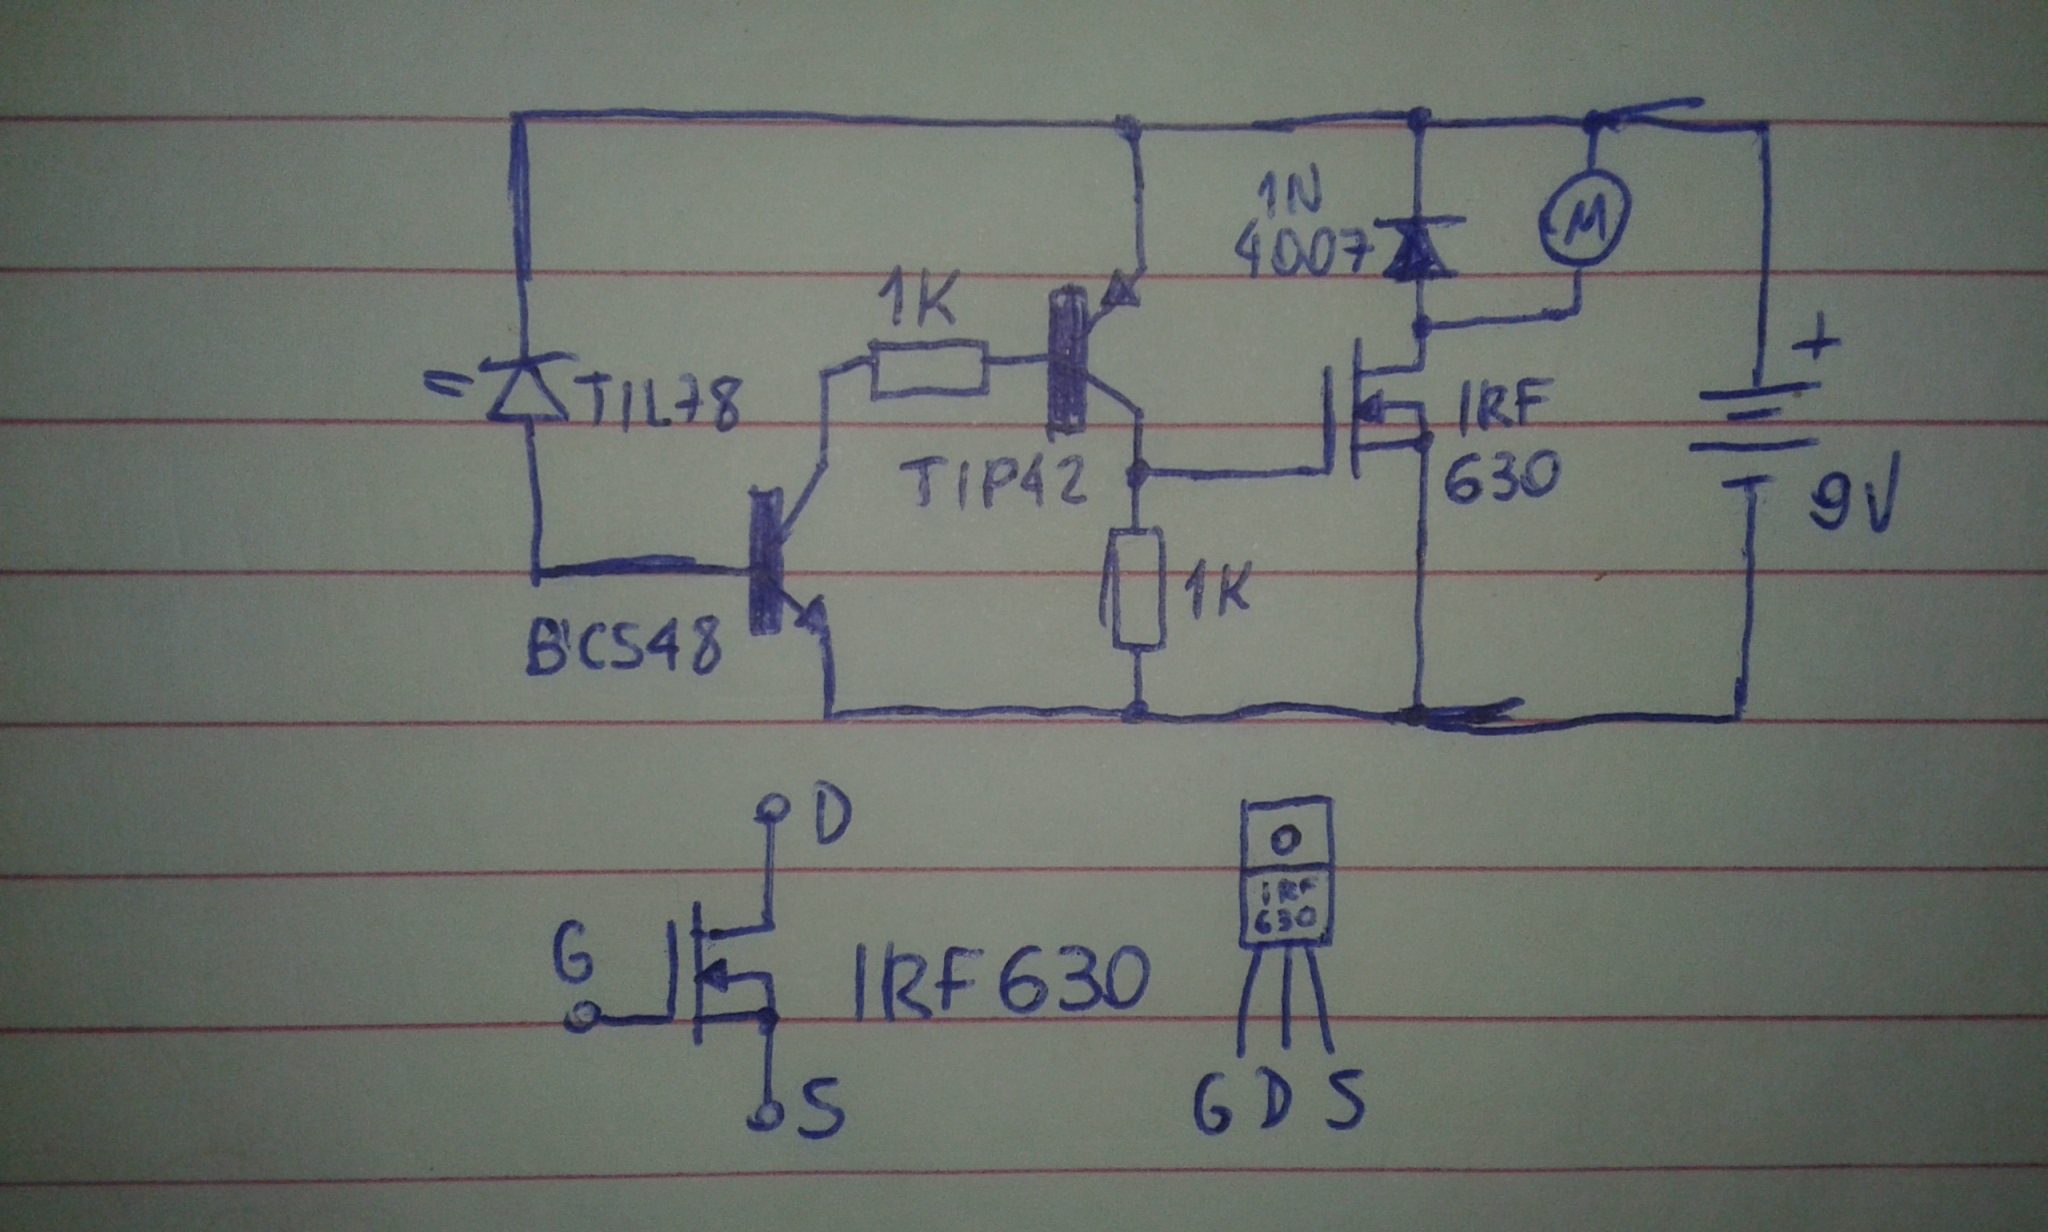 1N
4007
M
1K
+
TIL78
IRF
630
TIP42
9V
1K
BC548
D
G
IRF630
S
IRF
630
G D S